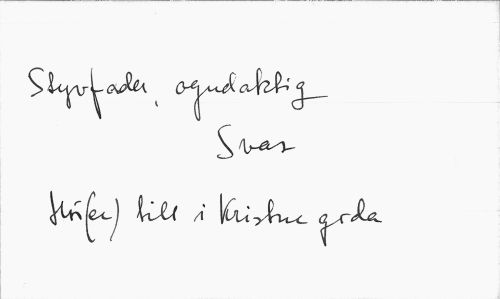 Styvfader, ogudaktig
Svar
Hör(er) till i Kristne grda